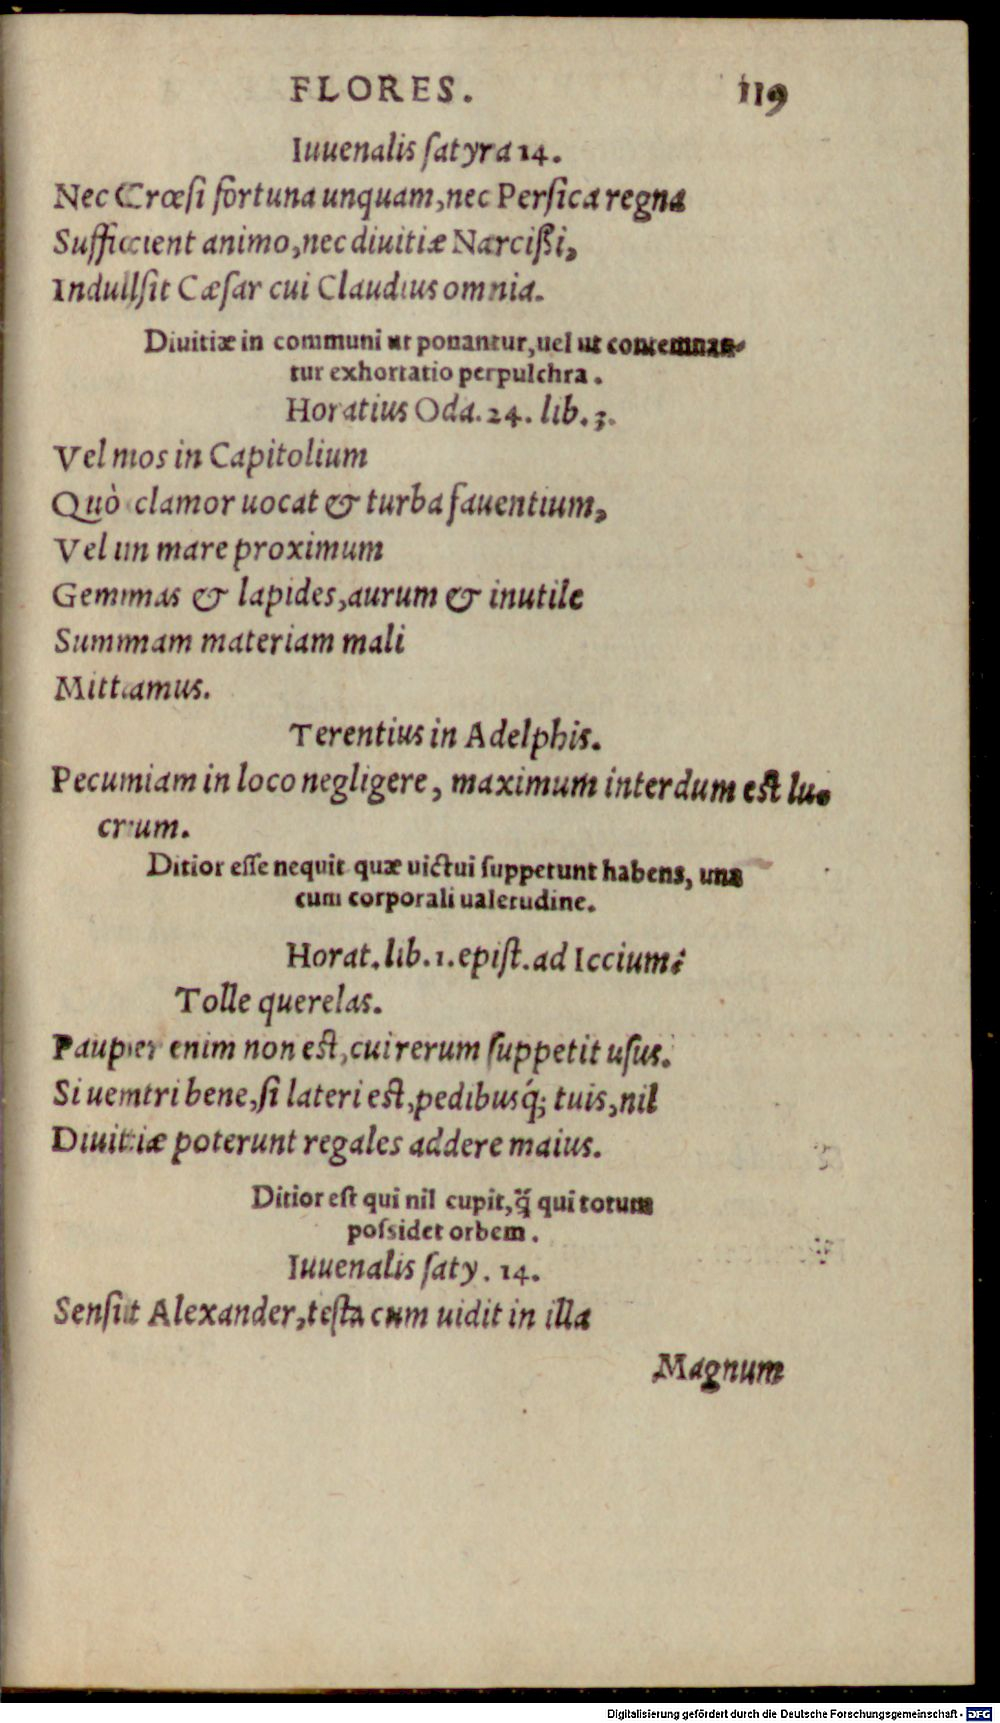 FLORES. 119
Iuuenalis ſatyra 14.
Nec Crœſi fortuna unquam, nec Perſica regna
Sufficient animo, nec diuitiæ Narcißi,
Indulſit Cæſar cui Claudius omnia.
Diuitiæ in communi ut ponantur, uel ut contemnan-
tur exhortatio perpulchra.
Horatius Oda. 24. lib. 3.
Vel nos in Capitolium
Quò clamor uocat & turba fauentium,
Vel in mare proximum
Gemmas & lapides, aurum & inutile
Summam materiam mali
Mittamus.
Terentius in Adelphis.
Pecuniam in loco negligere, maximum interdum eſt lu-
crum.
Ditior eſſe nequit quæ uictui ſuppetunt habens, una
cum corporali ualetudine.
Horat. lib. 1. epiſt. ad Iccium:
Tolle querelas.
Pauper enim non eſt, cui rerum ſuppetit uſus.
Si uentri bene, ſi lateri eſt, pedibusq́; tuis, nil
Diuitiæ poterunt regales addere maius.
Ditior eſt qui nil cupit, q̃ qui totum
poſsidet orbem.
Iuuenalis ſaty. 14.
Senſit Alexander, teſta cum uidit in illa
Magnum
Digitalisierung gefördert durch die Deutsche Forschungsgemeinschaft - DFG